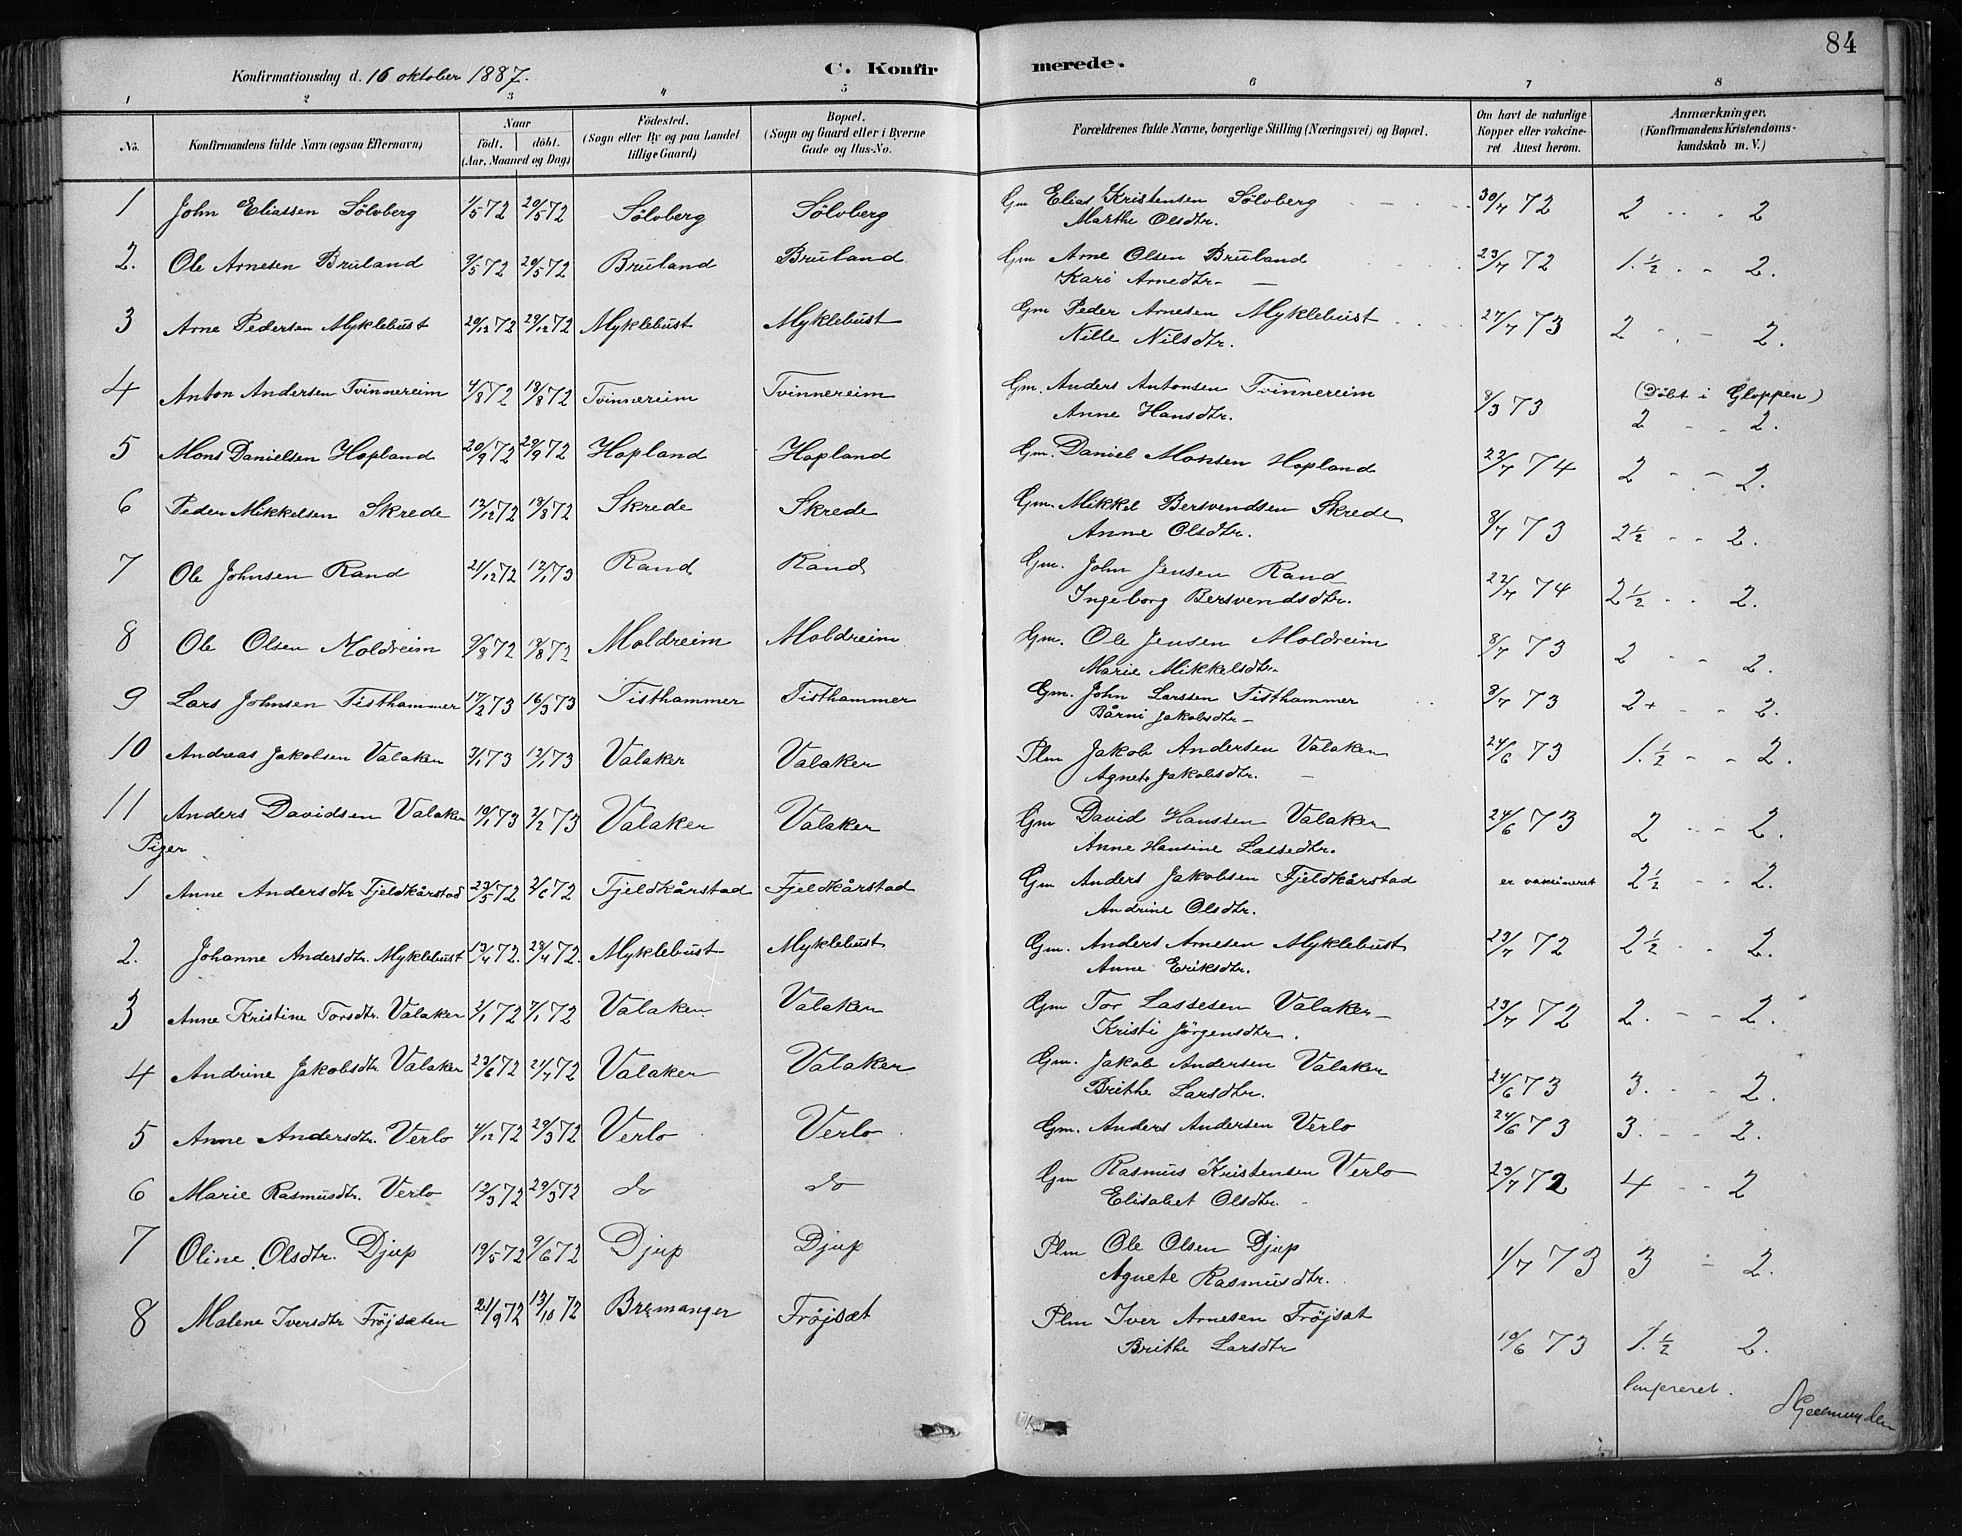 84
Konfirmationsdag d. 16 oktober 1887. C. Konfirmerede.
1 2 3 4 5 6 7 8
No. Konfirmandens fulde Navn (ogsaa Efternavn) Naar födt. döbt. (Aar, Maaned og Dag) Födested. (Sogn eller By og paa Landet tillige Gaard) Bopæl. (Sogn og Gaard eller i Byerne Gade og Hus-No. Forældrenes fulde Navne, borgerlige Stilling (Næringsvei) og Bopæl. Om havt de naturlige Kopper eller vakcineret Attest herom. Anmærkninger. (Konfirmandens Kristendomskundskab m. V.)
1 John Eliassen Sölvberg 1/5 72 20/5 72 Sölvberg Sölvberg Gm Elias Kristensen Sölvberg 30/7 72 2 - - 2
Marthe Olsdtr.
2. Ole Arnesen Bruland 9/5 72 20/5 72 Bruland Bruland Gm Arne Olsen Bruland 23/7 72 1.½ - - 2.
Kari Arnedtr. —
3 Arne Pedersen Myklebust 20/12 72 29/12 72 Myklebust Myklebust Gm Peder Arnesen Myklebust 27/7 73 2 - - 2.
Nille Nilsdtr.
4 Anton Andersen Tvinnereim 4/8 72 18/8 72 Tvinnereim Tvinnereim Gm. Anders Antonsen Tvinnereim (Döbt i Gloppen)
Anne Hansdtr. 8/3 73 2 - - 2.
5 Mons Danielsen Hopland 20/9 72 29/9 72 Hopland Hopland Gm. Daniel Monsen Hopland 22/7 74 2 - - 2.
6 Peder Mikkelsen Skrede 12/12 72 18/8 72 Skrede Skrede Gm. Mikkel Bersvendsen Skrede
Anne Olsdtr. 8/7 73 2½ - - 2.
7 Ole Johnsen Rand 21/12 72 12/1 73 Rand Rand Gm. John Jensen Rand
Ingeborg Bersvendsdtr. 22/7 74 2½ - - 2.
8 Ole Olsen Moldreim 9/8 72 18/8 72 Moldreim Moldreim Gm. Ole Jensen Moldreim 8/7 73 2 - - 2.
Marie Mikkelsdtr.
9 Lars Johnsen Tisthammer 17/2 73 16/3 73 Tisthammer Tisthammer Gm. John Larssen Tisthammer 8/7 73 2+ - - 2.
Bårni Jakobsdtr —
10 Andreas Jakobsen Valaker 3/1 73 12/1 73 Valaker Valaker Plm Jakob Andersen Valaker 24/6 73 1.½ - - 2.
Agnete Jakobsdtr. —
11 Anders Davidsen Valaker 10/1 73 2/2 73 Valaker Valaker Gm David Hanssen Valaker 24/6 73 2 - - 2.
Anne Hansine Lassedtr.
Piger
1 Anne Andersdtr Fjeldkårstad 23/5 72 2/6 72 Fjeldkårstad Fjeldkårstad Gm Anders Jakobsen Fjeldkårstad er vaccineret 2½ - - 2.
Andrine Olsdtr.
2. Johanne Andersdtr. Myklebust 13/4 72. 28/4 72. Myklebust Myklebust Gm. Anders Arnesen Myklebust 23/7 72 2½ - - 2.
Anne Eriksdtr.
3 Anne Kristine Torsdtr. Valaker 2/1 72 7/1 72 Valaker Valaker Gm Tor Lassesen Valaker — 23/7 72 2. - - 2.
Kristi Jörgensdtr.
4 Andrine Jakobsdtr Valaker 23/6 72 21/7 72 Valaker Valaker Gm. Jakob Andersen Valaker
Brithe Larsdtr. 24/6 73 3. - - 2.
5 Anne Andersdtr. Verlo 4/12 72 29/3 72 Verlo Verlo Gm. Anders Andersen Verlo 24/6 73 3. - - 2.
6 Marie Rasmusdtr. Verlo 12/3 72 29/3 72 do do Gm Rasmus Kristensen Verlo 23/7 72 4 - - 2
Elisabet Olsdtr. -
7 Oline Olsdtr. Djup 19/5 72 9/6 72 Djup Djup Plm Ole Olsen Djup 1/7 73 3 - 2.
Agnete Rasmusdtr.
8 Malene Iversdtr Fröjsæten 21/9 72 13/10 72 Bremanger Fröjsæt Plm Iver Arnesen Fröjsæt
Brithe Larsdtr 10/6 73 1.½ - 2.
Geelmuyden